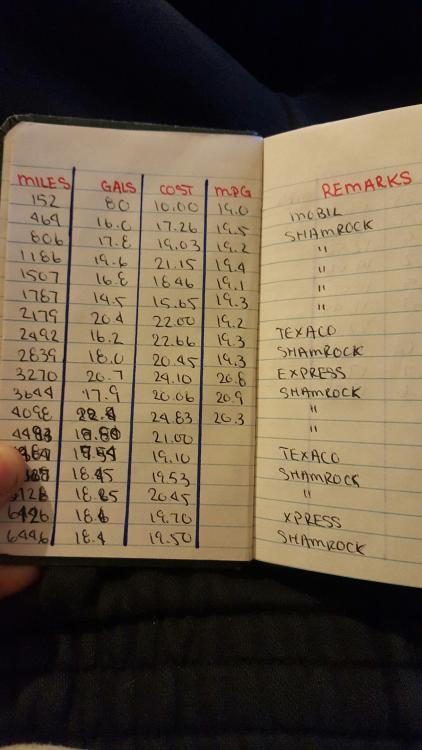 MILES GALS COST MPG REMARKS
152 80 10.00 19.0 MOBIL
469 16.0 17.26 19.5 SHAMROCK
806 17.8 19.03 19.2 "
1186 19.6 21.15 19.4 "
1507 16.8 18.46 19.1 "
1787 14.5 15.65 19.3 "
2179 20.4 22.00 19.2 TEXACO
2492 16.2 22.66 19.3 SHAMROCK
2839 18.0 20.45 19.3 EXPRESS
3270 20.7 24.10 20.8 SHAMROCK
3644 17.9 20.06 20.9 "
4098 24.83 20.3 "
21.00
19.10 TEXACO
18.45 19.53 SHAMROCK
18.85 20.45 "
6426 18.6 19.70 XPRESS
18.4 19.50 SHAMROCK